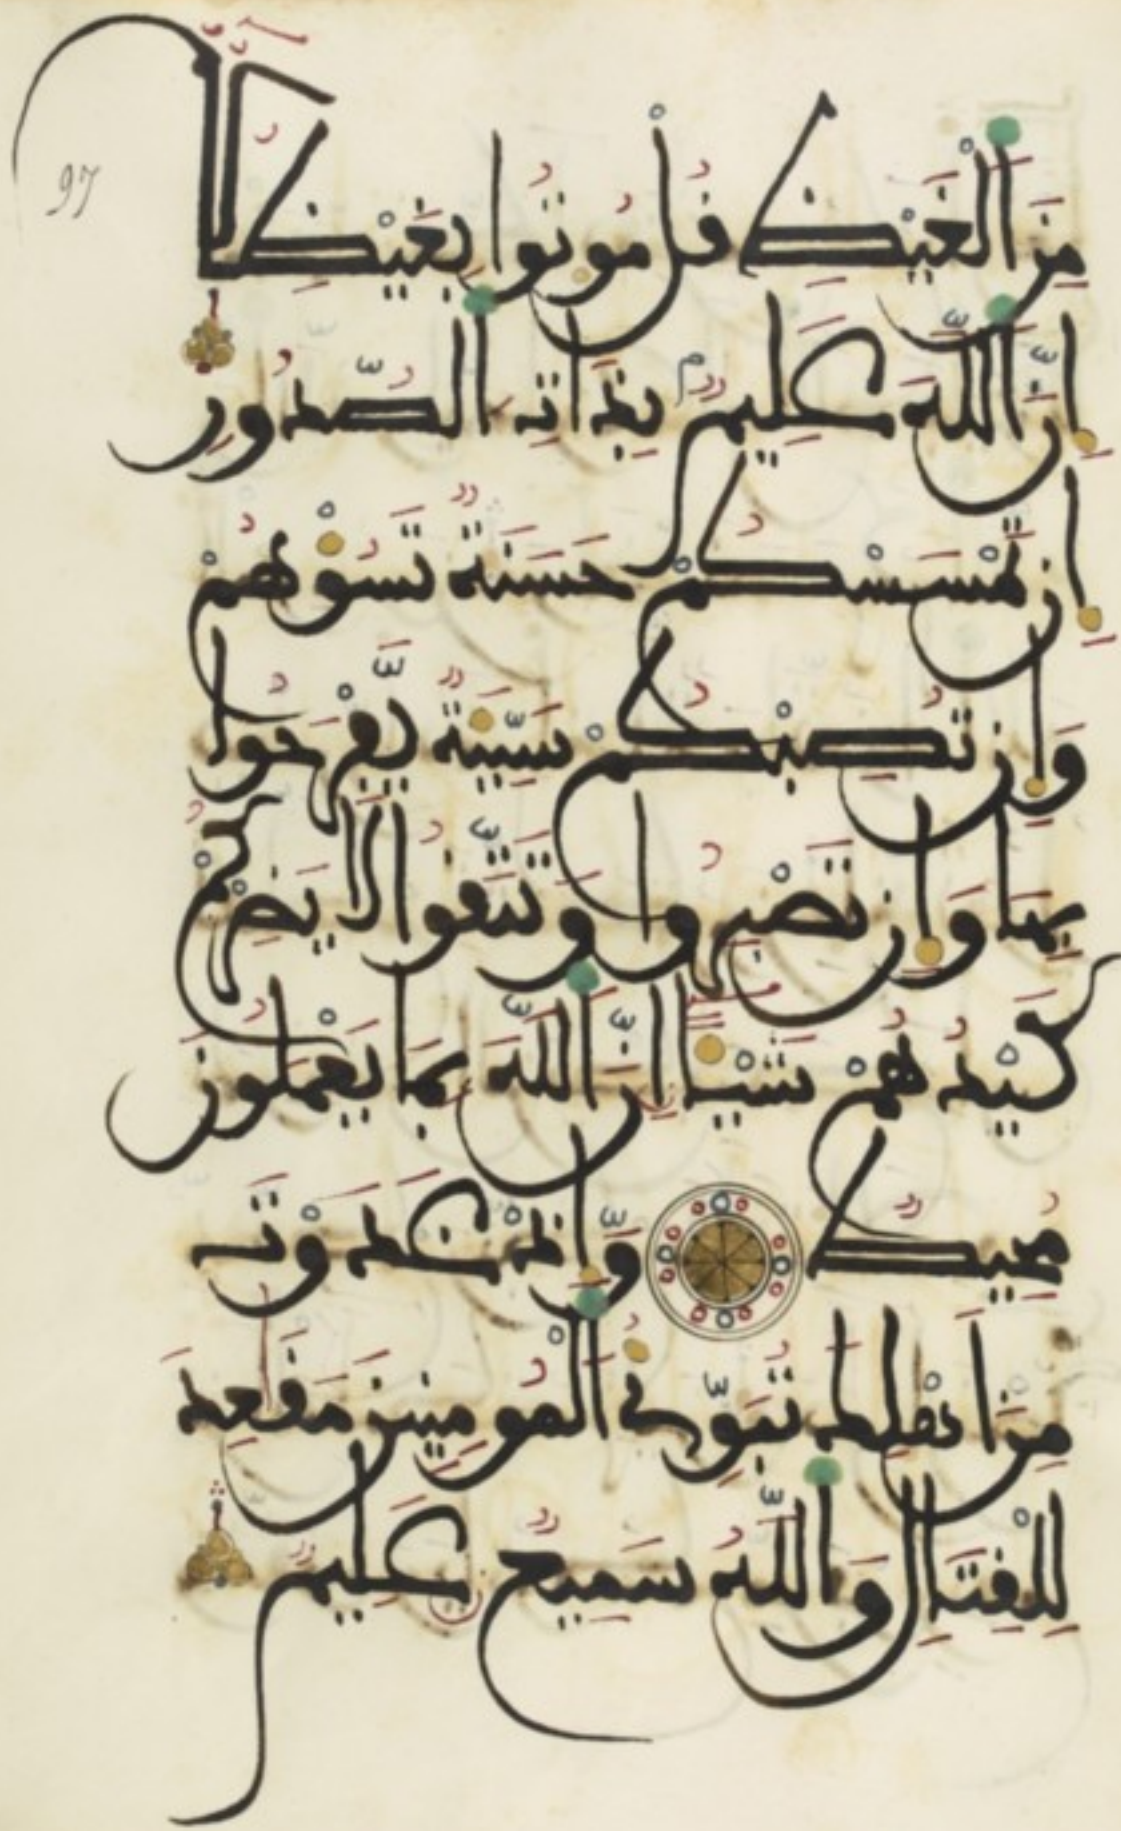 97
مِنَ الْغَيْظِ قُلْ مُوتُوا بِغَيْظِكُمُ
إِنَّ اللَّهَ عَلِيمٌ بِذَاتِ الصُّدُورِ
إِن تَمْسَسْكُمْ حَسَنَةٌ تَسُؤْهُمْ
وَإِن تُصِبْكُمْ سَيِّئَةٌ يَّفْرَحُوا
بِهَا وَإِن تَصْبِرُوا وَتَتَّقُوا لَا يَضِرْكُمْ
كَيْدُهُمْ شَيْـًٔا إِنَّ اللَّهَ بِمَا يَعْمَلُونَ
مُحِيطٌ وَّإِذْ غَدَوْتَ
مِنَ اهْلِكَ تُبَوِّئُ الْمُومِنِينَ مَقَٰعِدَ
لِلْقِتَالِ وَاللَّهُ سَمِيعٌ عَلِيمٌ